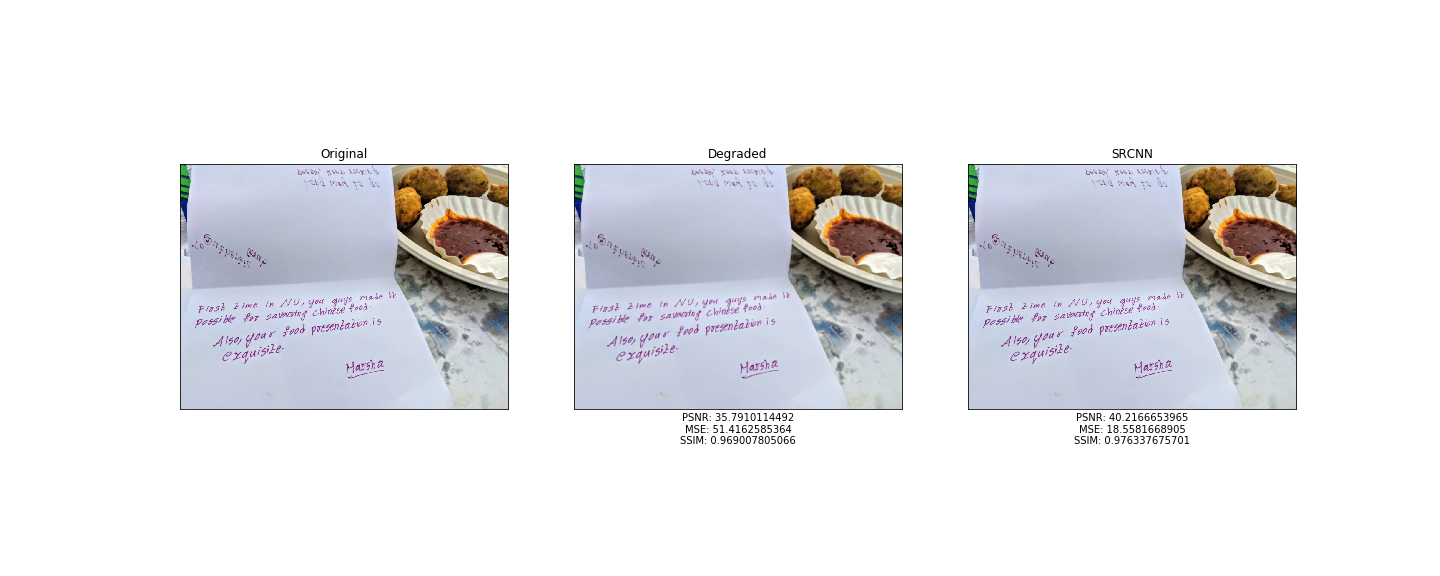 Original
First time in NU, you guys made it
Possible for savouring Chinese food.
Also, your food presentation is
exquisite.
Marsha
Degraded
First time in NU, you guys made it
Possible for savouring Chinese food.
Also, your food presentation is
exquisite.
Marsha
PSNR: 35.7910114492
MSE: 51.4162585364
SSIM: 0.969007805066
SRCNN
First time in NU, you guys made it
Possible for savouring Chinese food.
Also, your food presentation is
exquisite.
Marsha
PSNR: 40.2166653965
MSE: 18.5581668905
SSIM: 0.976337675701